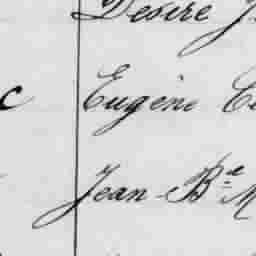 Desire J
c Eugène C
Jean-Bte M